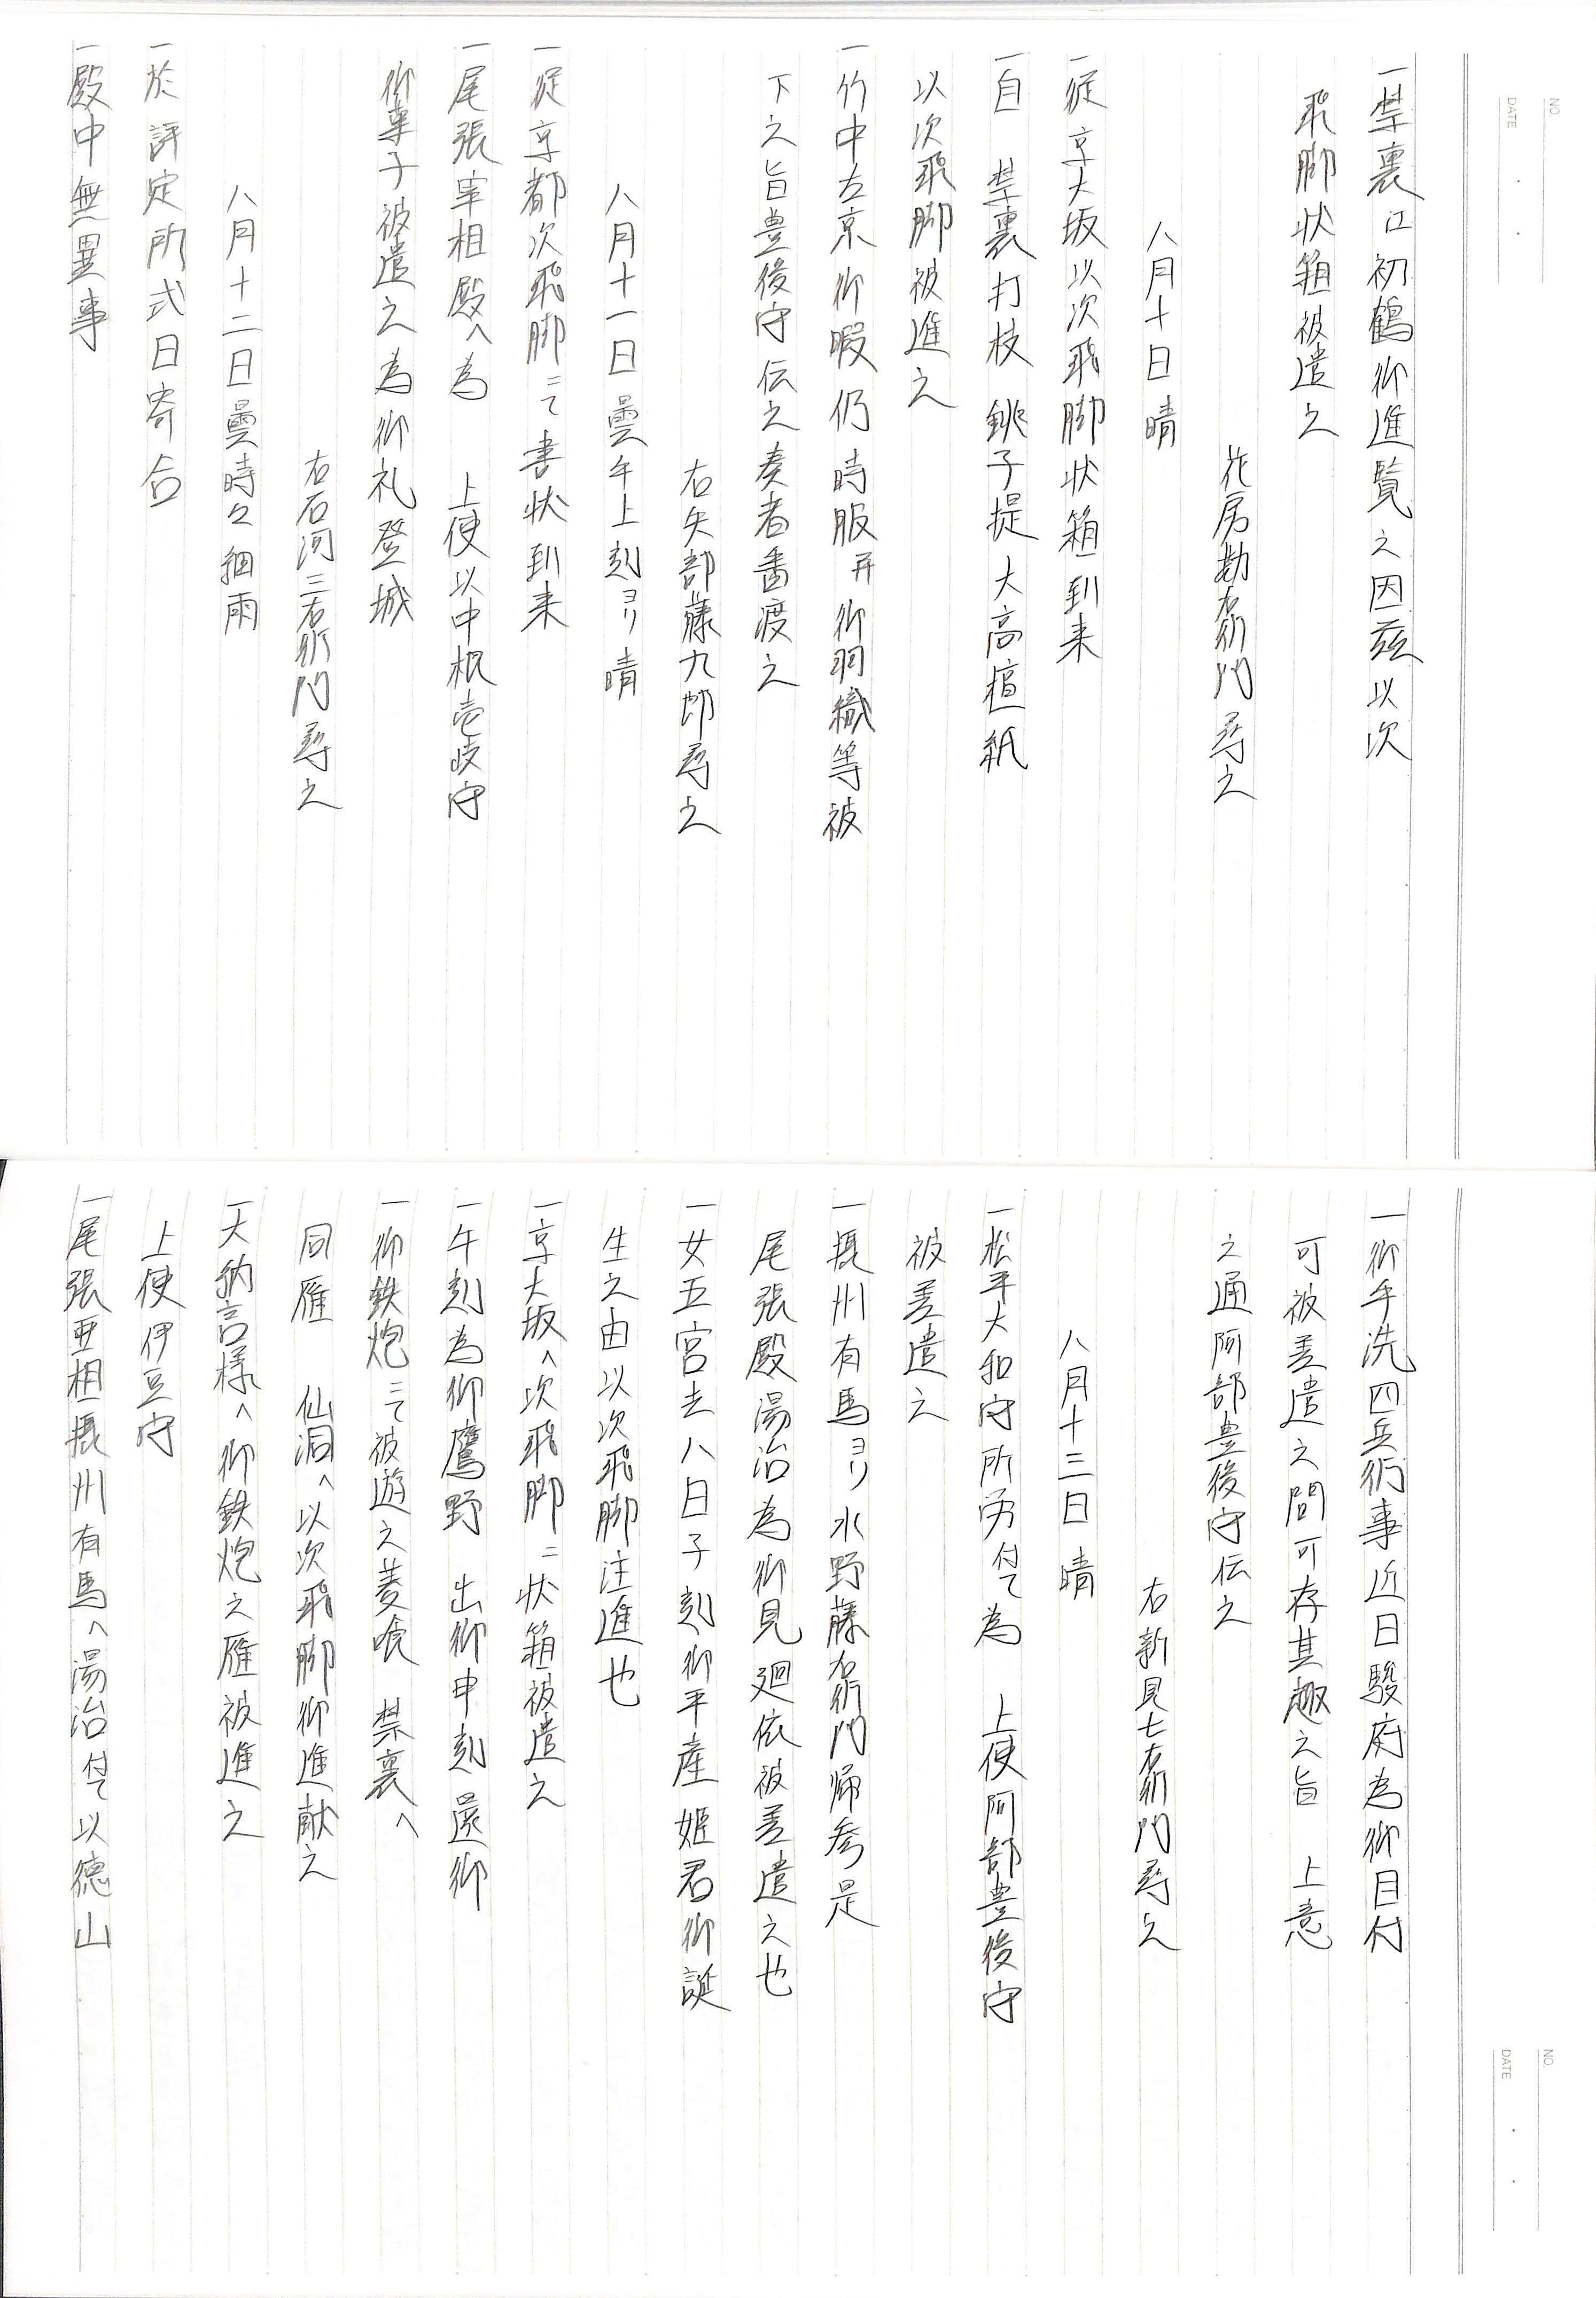 NO.
DATE
一禁裏江初鶴御進覧之因茲以次
飛脚状箱被遣之
花房勘右衛門尋之
八月十日晴
一従京大坂以次飛脚状箱到来
一自 禁裏打枝 銚子提大高檀紙
以次飛脚被進之
一竹中左京御暇仍時服并御羽織等被
下之旨豊後守伝之奏者番渡之
右矢部藤九郎尋之
八月十一日曇午上刻ヨリ晴
一従京都次飛脚ニて書状到来
一尾張宰相殿へ為 上使以中根壱岐守
御菓子被遣之為御礼登城
右石河三右衛門尋之
八月十二日曇時々細雨
一於評定所式日寄合
一殿中無異事
NO.
DATE
一御手洗四兵衛事近日駿府為御目付
可被差遣之間可存其趣之旨 上意
之通阿部豊後守伝之
右新見七右衛門尋之
八月十三日晴
一松平大和守所労付て為 上使阿部豊後守
被差遣之
一摂州有馬ヨリ水野藤右衛門帰参是
尾張殿湯治為御見廻依被差遣之也
一女五宮去八日子刻御平産姫君御誕
生之由以次飛脚注進也
一京大坂へ次飛脚ニ状箱被遣之
一午刻為御鷹野 出御申刻還御
一御鉄炮ニて被遊之菱喰 禁裏へ
同雁 仙洞へ以次飛脚御進献之
一大納言様へ御鉄炮之雁被進之
上使伊豆守
一尾張亜相摂州有馬へ湯治付て以徳山